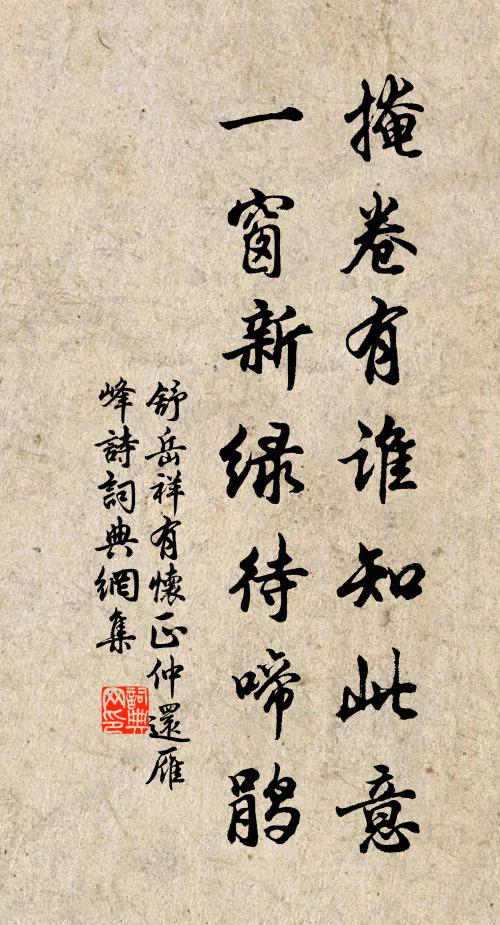 掩卷有谁知此意
一窗新绿待啼鹃
舒岳祥有懷正仲還雁
峰詩詞典網集
詞典
网印